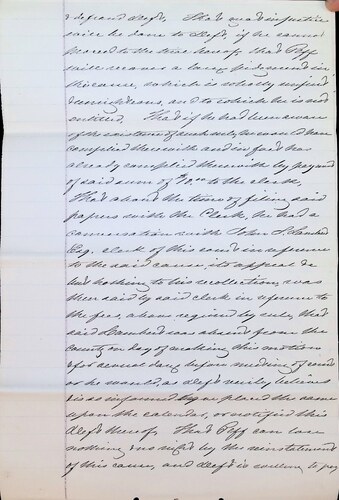 & defraud Deft. That great injustice
will be done to Deft, if he cannot
proceed to the time hereof, that Plff
will recover a large judgment in
this cause, which is wholly unjust
& and to which he is not
entitled. That if he had been aware
of the existence of such rule, he would have
complied therewith and in fact has
already complied therewith by payment
of said sum of $10.00 to the clerk,
That about the time of filing said
papers with the Clerk, he had a
conversation with John S.
Esq. clerk of this court in reference
to the said cause, its appeal &c
but nothing to his recollection, was
then said by said clerk in reference to
the fee, above required by rule, that
said was absent from the
county on day of making this motion
& for several days before meeting of court
or he would as deft verily believes
& is so informed have placed the same
upon the calendar, or notified this
deft thereof. That Plff can lose
nothing & no right by the reinstatement
of this cause, and deft is willing to pay